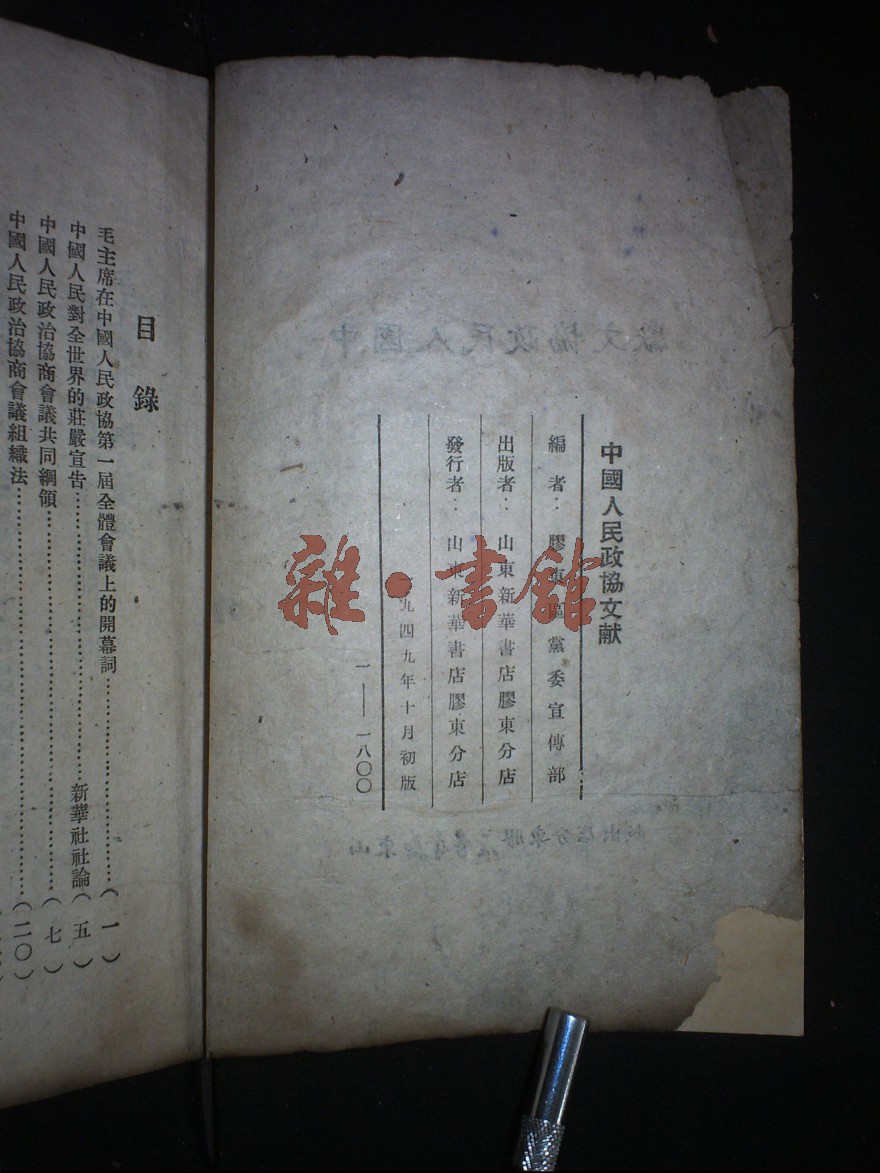 中國人民政協文献
編者：膠東區黨委宣傳部
出版者：山東新華書店膠東分店
發行者：山東新華書店膠東分店
一九四九年十月初版
一——一八〇〇
目錄
毛主席在中國人民政協第一屆全體會議上的開幕詞……………………（一）
中國人民對全世界的莊嚴宣告……………………新華社社論（五）
中國人民政治協商會議共同綱領……………………（七）
中國人民政治協商會議組織法……………………（二〇）
雜·書館